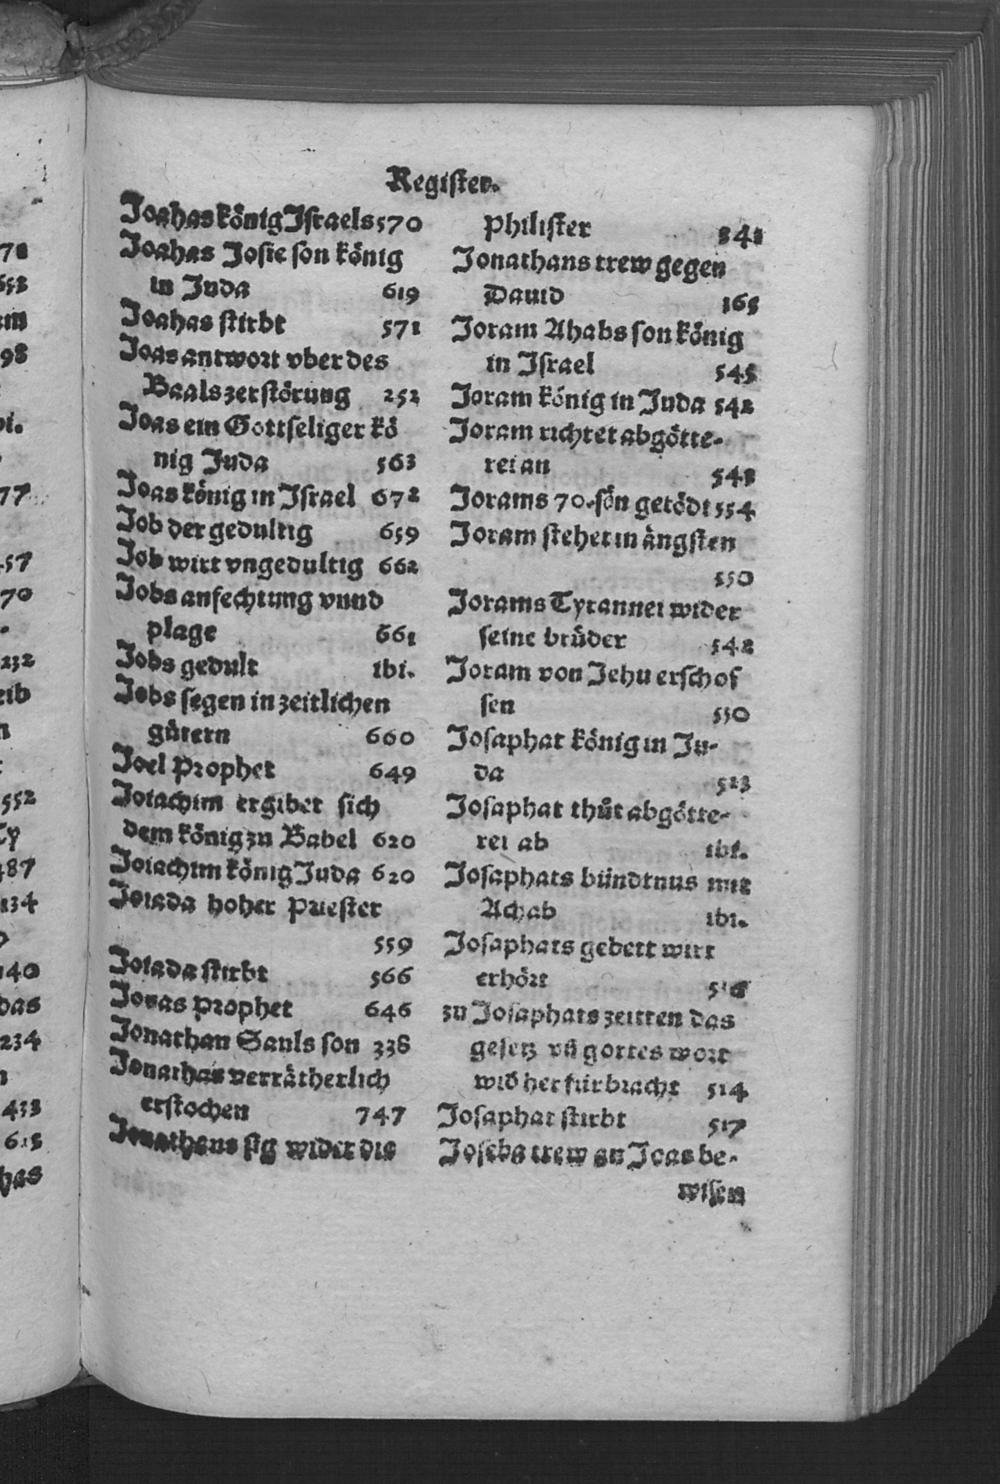 Register.
Joahas könig Israels 570
Joahas Josie son könig
in Juda 619
Joahas stirbt 571
Joas antwort vber des
Baals zerstörung 252
Joas ein Gottseliger kö
nig Juda 563
Joas könig in Israel 672
Job der gedultig 659
Job wirt vngedultig 662
Jobs anfechtung vnnd
plage 661
Jobs gedult ibi.
Jobs segen in zeitlichen
gütern 660
Joel Prophet 649
Joiachim ergibet sich
dem könig zu Babel 620
Joiachim könig Juda 620
Joiada hoher Priester
559
Joiada stirbt 566
Jonas Prophet 646
Jonathan Sauls son 338
Jonathas verrätherlich
erstochen 747
Jonathans sig wider die
Philister 341
Jonathans trew gegen
Dauid 365
Joram Ahabs son könig
in Israel 545
Joram könig in Juda 542
Joram richtet abgötte-
rei an 543
Jorams 70. sön getödt 554
Joram stehet in ängsten
550
Jorams Tyrannei wider
seine brüder 542
Joram von Jehu erschos
sen 550
Josaphat könig in Ju-
da 513
Josaphat thůt abgötte-
rei ab ibi.
Josaphats bündtnus mit
Achab ibi.
Josaphats gebett wirt
erhört 516
zu Josaphats zeitten das
gesetz vn̄ gottes wort
wid herfür bracht 514
Josaphat stirbt 517
Josebs trew an Joas be-
wisen
78
653
98
77
457
70
232
eib
552
487
134
140
das
234
433
615
has